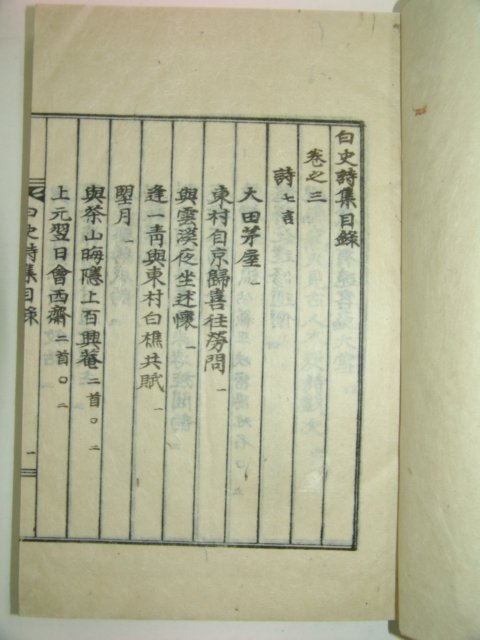 白史詩集目錄
卷之三
詩 七言
大田茅屋 一
東村自京歸喜往勞問 一
與雲漢夜坐述懷 一
逢一靑與東村白樵共賦 一
望月 一
與茶山晦隱上百興菴 二首○二
上元翌日會西齋 二首○二
白史詩集目錄 一